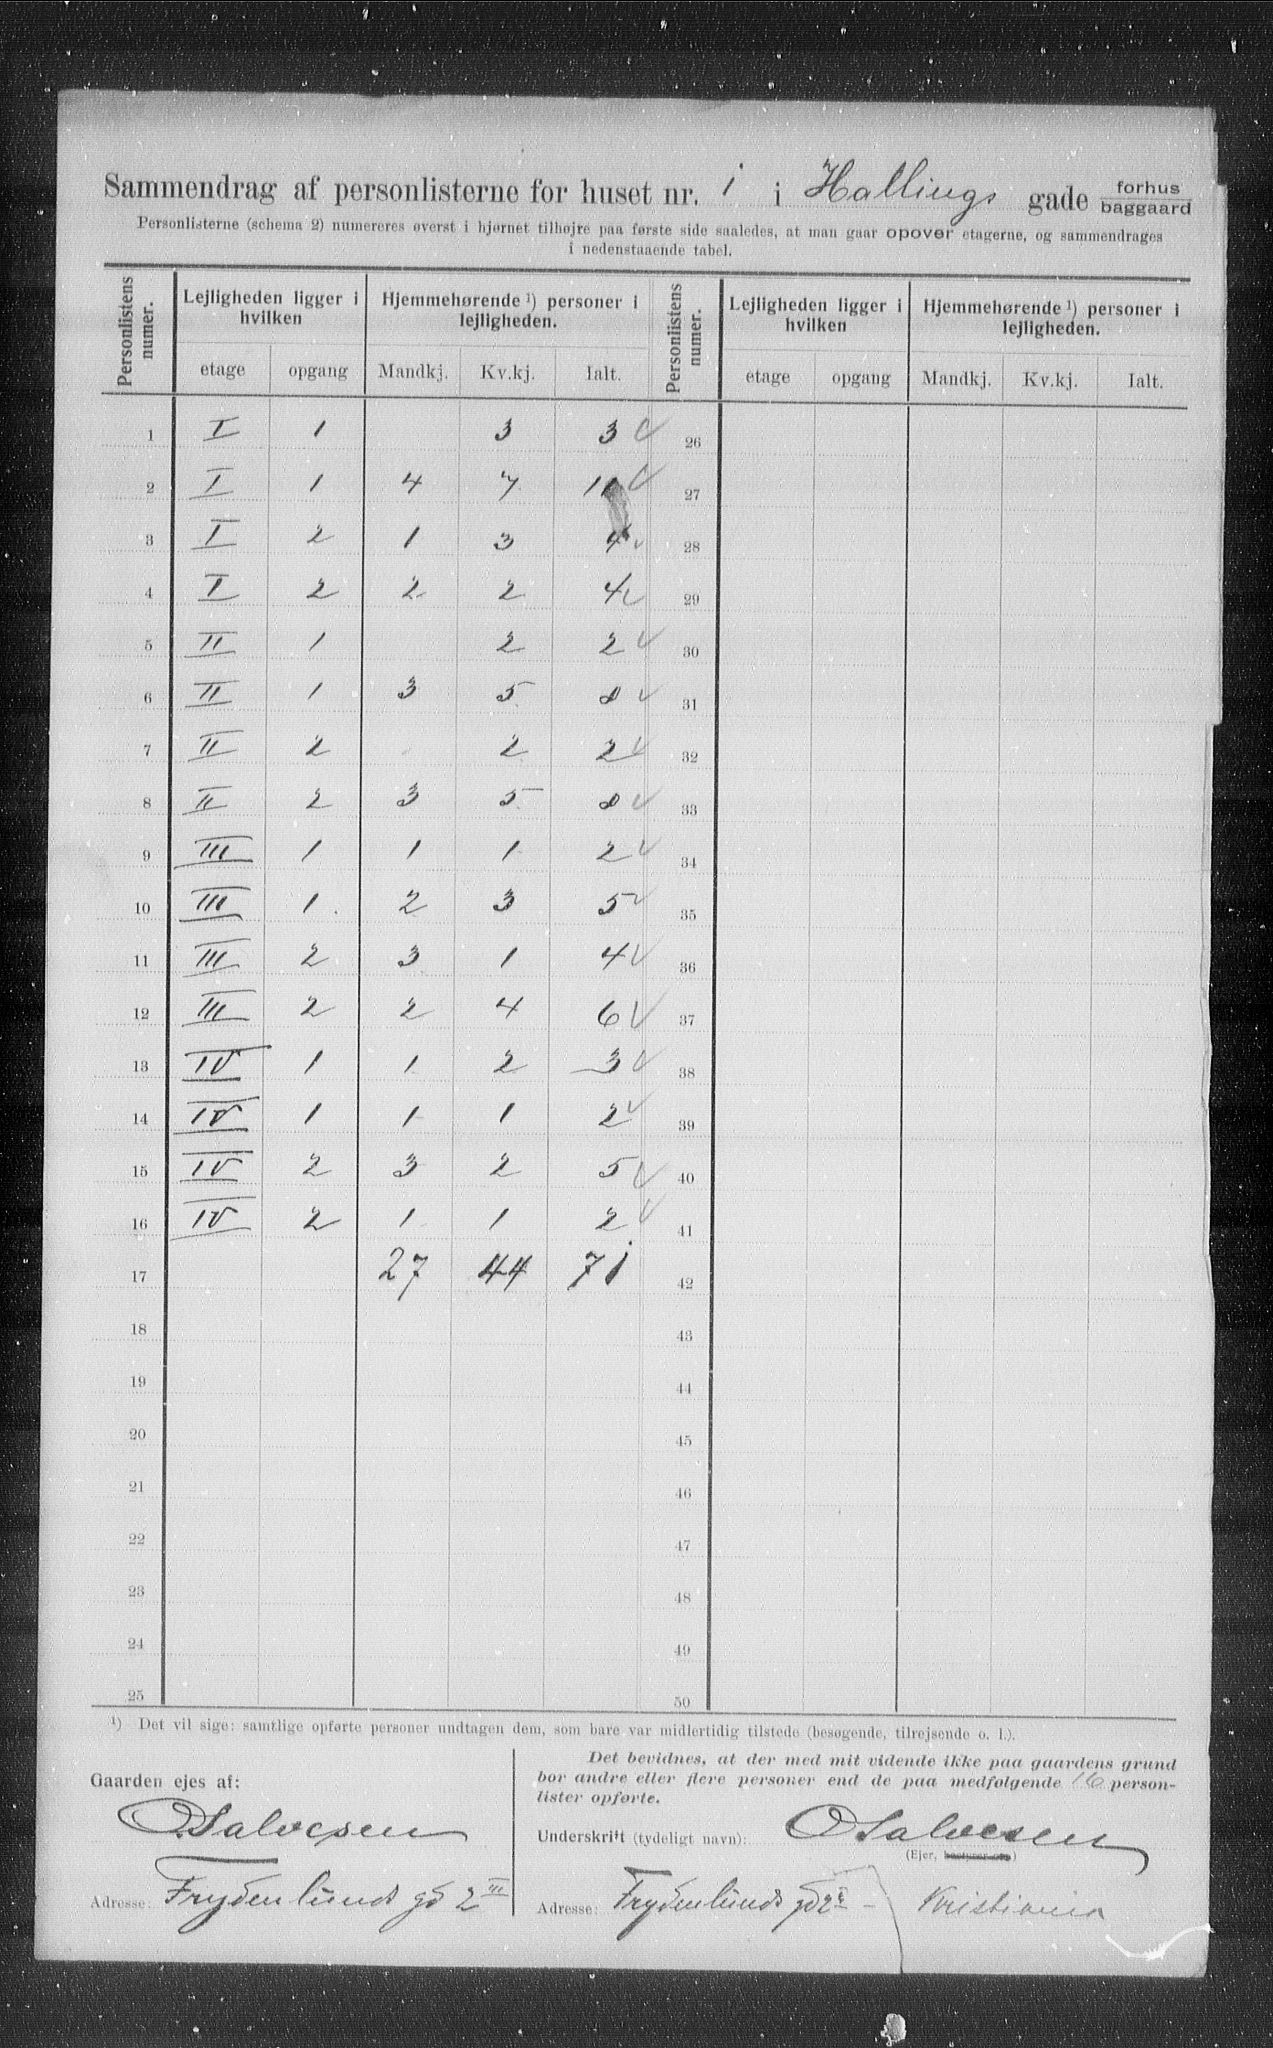 Sammendrag af personlisterne for huset nr. 1 i Hallings gade forhus baggaard
Personlisterne (schema 2) numereres øverst i hjørnet tilhøjre paa første side saaledes, at man gaar opover etagerne, og sammendrages
i nedenstaaende tabel.
Personlistens numer. Lejligheden ligger i hvilken Hjemmehørende ¹) personer i lejligheden. Personlistens numer. Lejligheden ligger i hvilken Hjemmehørende ¹) personer i lejligheden.
etage opgang Mandkj. Kv.kj. Ialt. etage opgang Mandkj. Kv.kj. Ialt.
1 I 1 3 3 ✓ 26
2 I 1 4 7 11 ✓ 27
3 I 2 1 3 4 ✓ 28
4 I 2 2 2 4 ✓ 29
5 II 1 2 2 ✓ 30
6 II 1 3 5 8 ✓ 31
7 II 2 2 2 ✓ 32
8 II 2 3 5 8 ✓ 33
9 III 1 1 1 2 ✓ 34
10 III 1 2 3 5 ✓ 35
11 III 2 3 1 4 ✓ 36
12 III 2 2 4 6 ✓ 37
13 IV 1 1 2 3 ✓ 38
14 IV 1 1 1 2 ✓ 39
15 IV 2 3 2 5 ✓ 40
16 IV 2 1 1 2 ✓ 41
17 27 44 71 42
18 43
19 44
20 45
21 46
22 47
23 48
24 49
25 50
¹) Det vil sige: samtlige opførte personer undtagen dem, som bare var midlertidig tilstede (besøgende, tilrejsende o. l.).
Gaarden ejes af:
O Salvesen
Adresse: Frydenlunds gd 2 III
Det bevidnes, at der med mit vidende ikke paa gaardens grund
bor andre eller flere personer end de paa medfølgende 16 person-
lister opførte.
Underskrift (tydeligt navn): O Salvesen
(Ejer, bestyrer etc.)
Adresse: Frydenlunds gd 2 – Kristiania